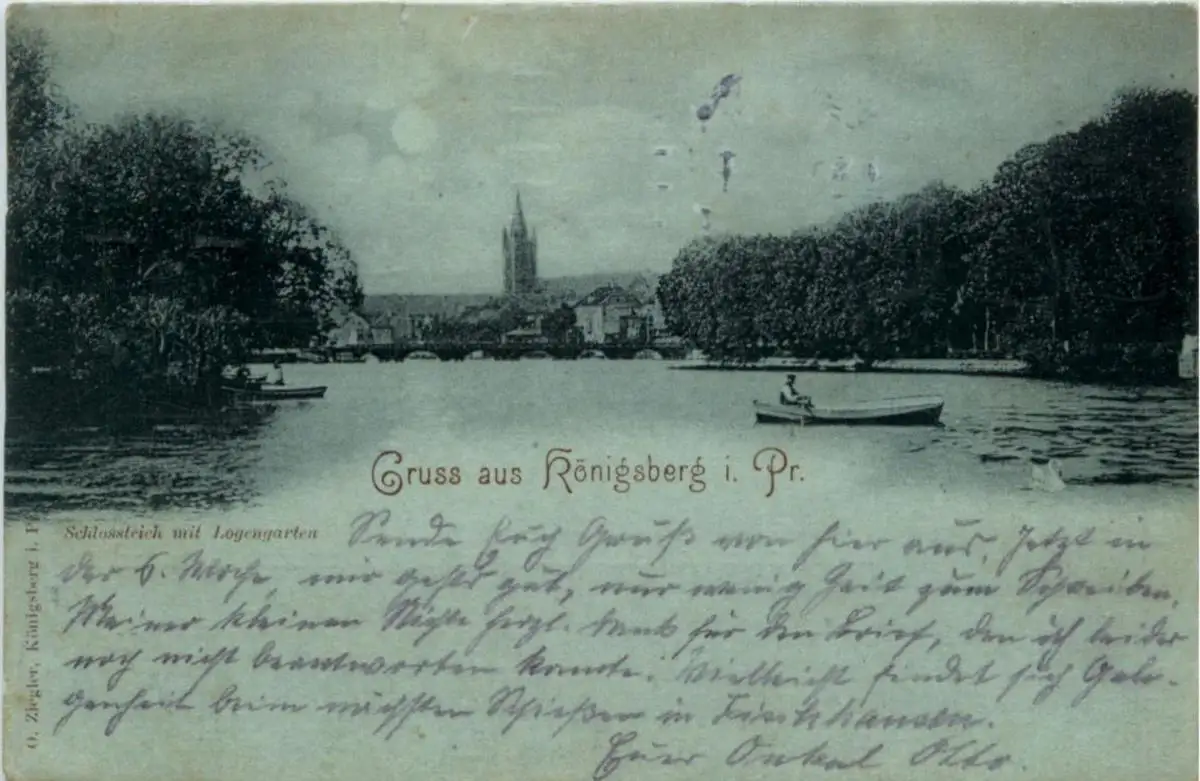 Gruss aus Königsberg i. Pr.
Schlossteich mit Logengarten
O. Ziegler, Königsberg i. Pr.
Sende Euch Gruß von hier aus. Jetzt in
der 6. Woche, mir geht's gut, nur wenig Zeit zum Schreiben.
Meiner kleinen Nichte herzl. Dank für den Brief, den ich leider
noch nicht beantworten konnte. Vielleicht findet sich Gele-
genheit beim nächsten Schießen in Fischhausen.
Euer Onkel Otto.